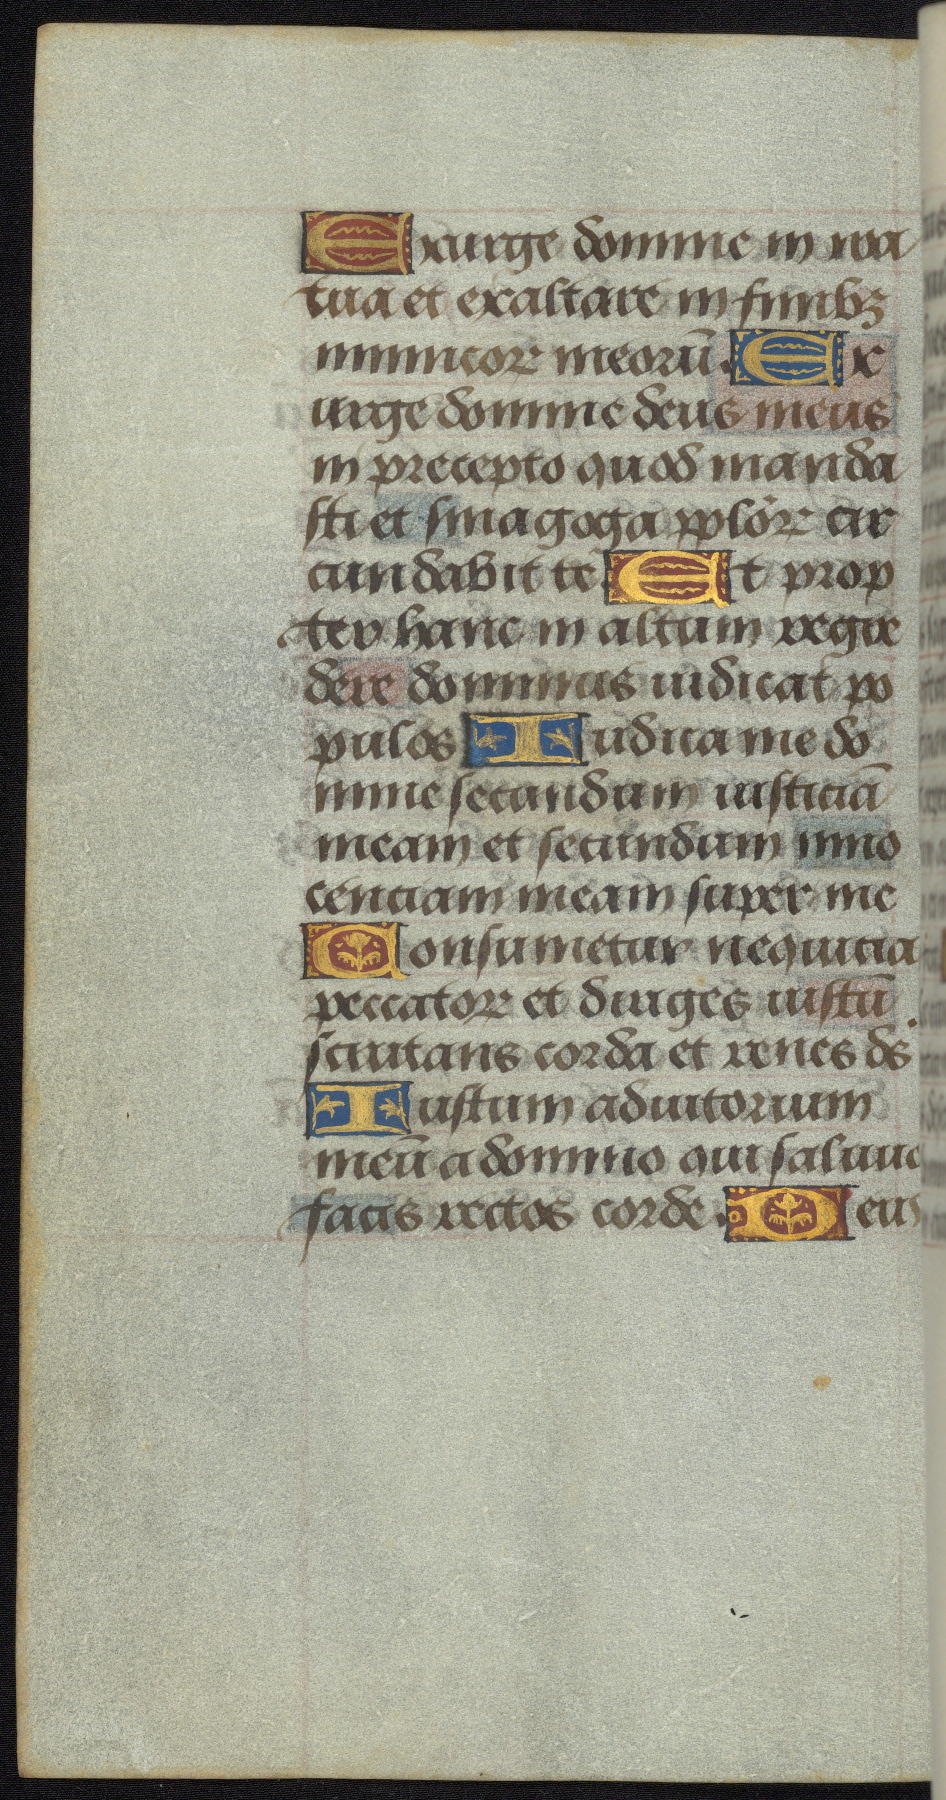 Exurge domine in ira
tua et exaltare in finibꝫ
inimicoꝝ meorū. Ex
urge domine deus meus
in precepto quod manda
sti et sinagoga pploꝝ cir
cundabit te. Et prop
ter hanc in altum regre
dere dominus iudicat po
pulos Iudica me do
mine secundum iusticiā
meam et secundum inno
cenciam meam super me
Consumetur nequicia
peccatoꝝ et diriges iustū
scrutans corda et renes ds
Iustum adiutorium
meū a domino qui saluuo
facis rectos corde. Deus